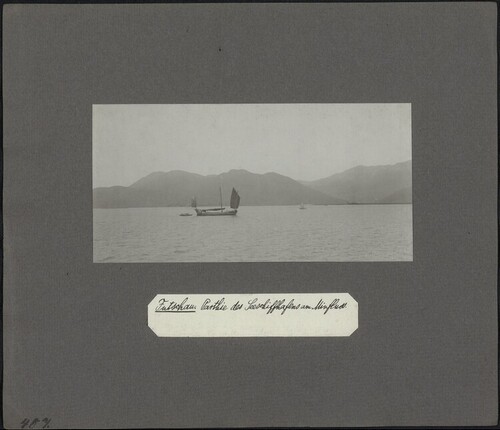 Futschau Parthie des Seeschiffhafens am Minfluss